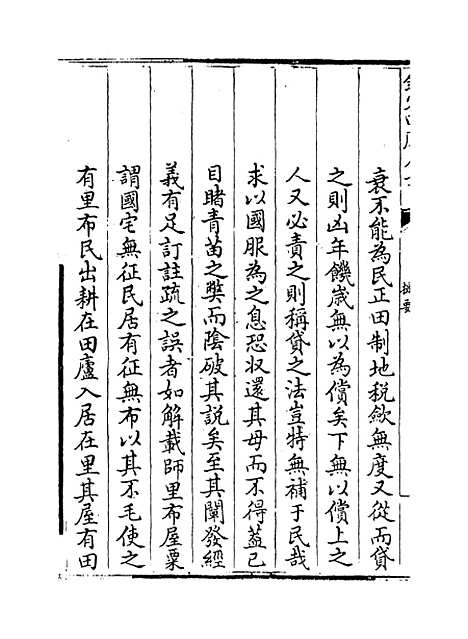 衰不能為民正田制地税歛無度又從而貸
之則凶年饑歳無以為償矣下無以償上之
人又必責之則稱貸之法豈特無補于民哉
求以國服為之息恐收還其母而不得葢已
目睹青苗之弊而隂破其説矣至其闡發經
義有足訂註疏之誤者如解載師里布屋粟
謂國宅無征民居有征無布以其不毛使之
有里布民出耕在田廬入居在里其屋有田